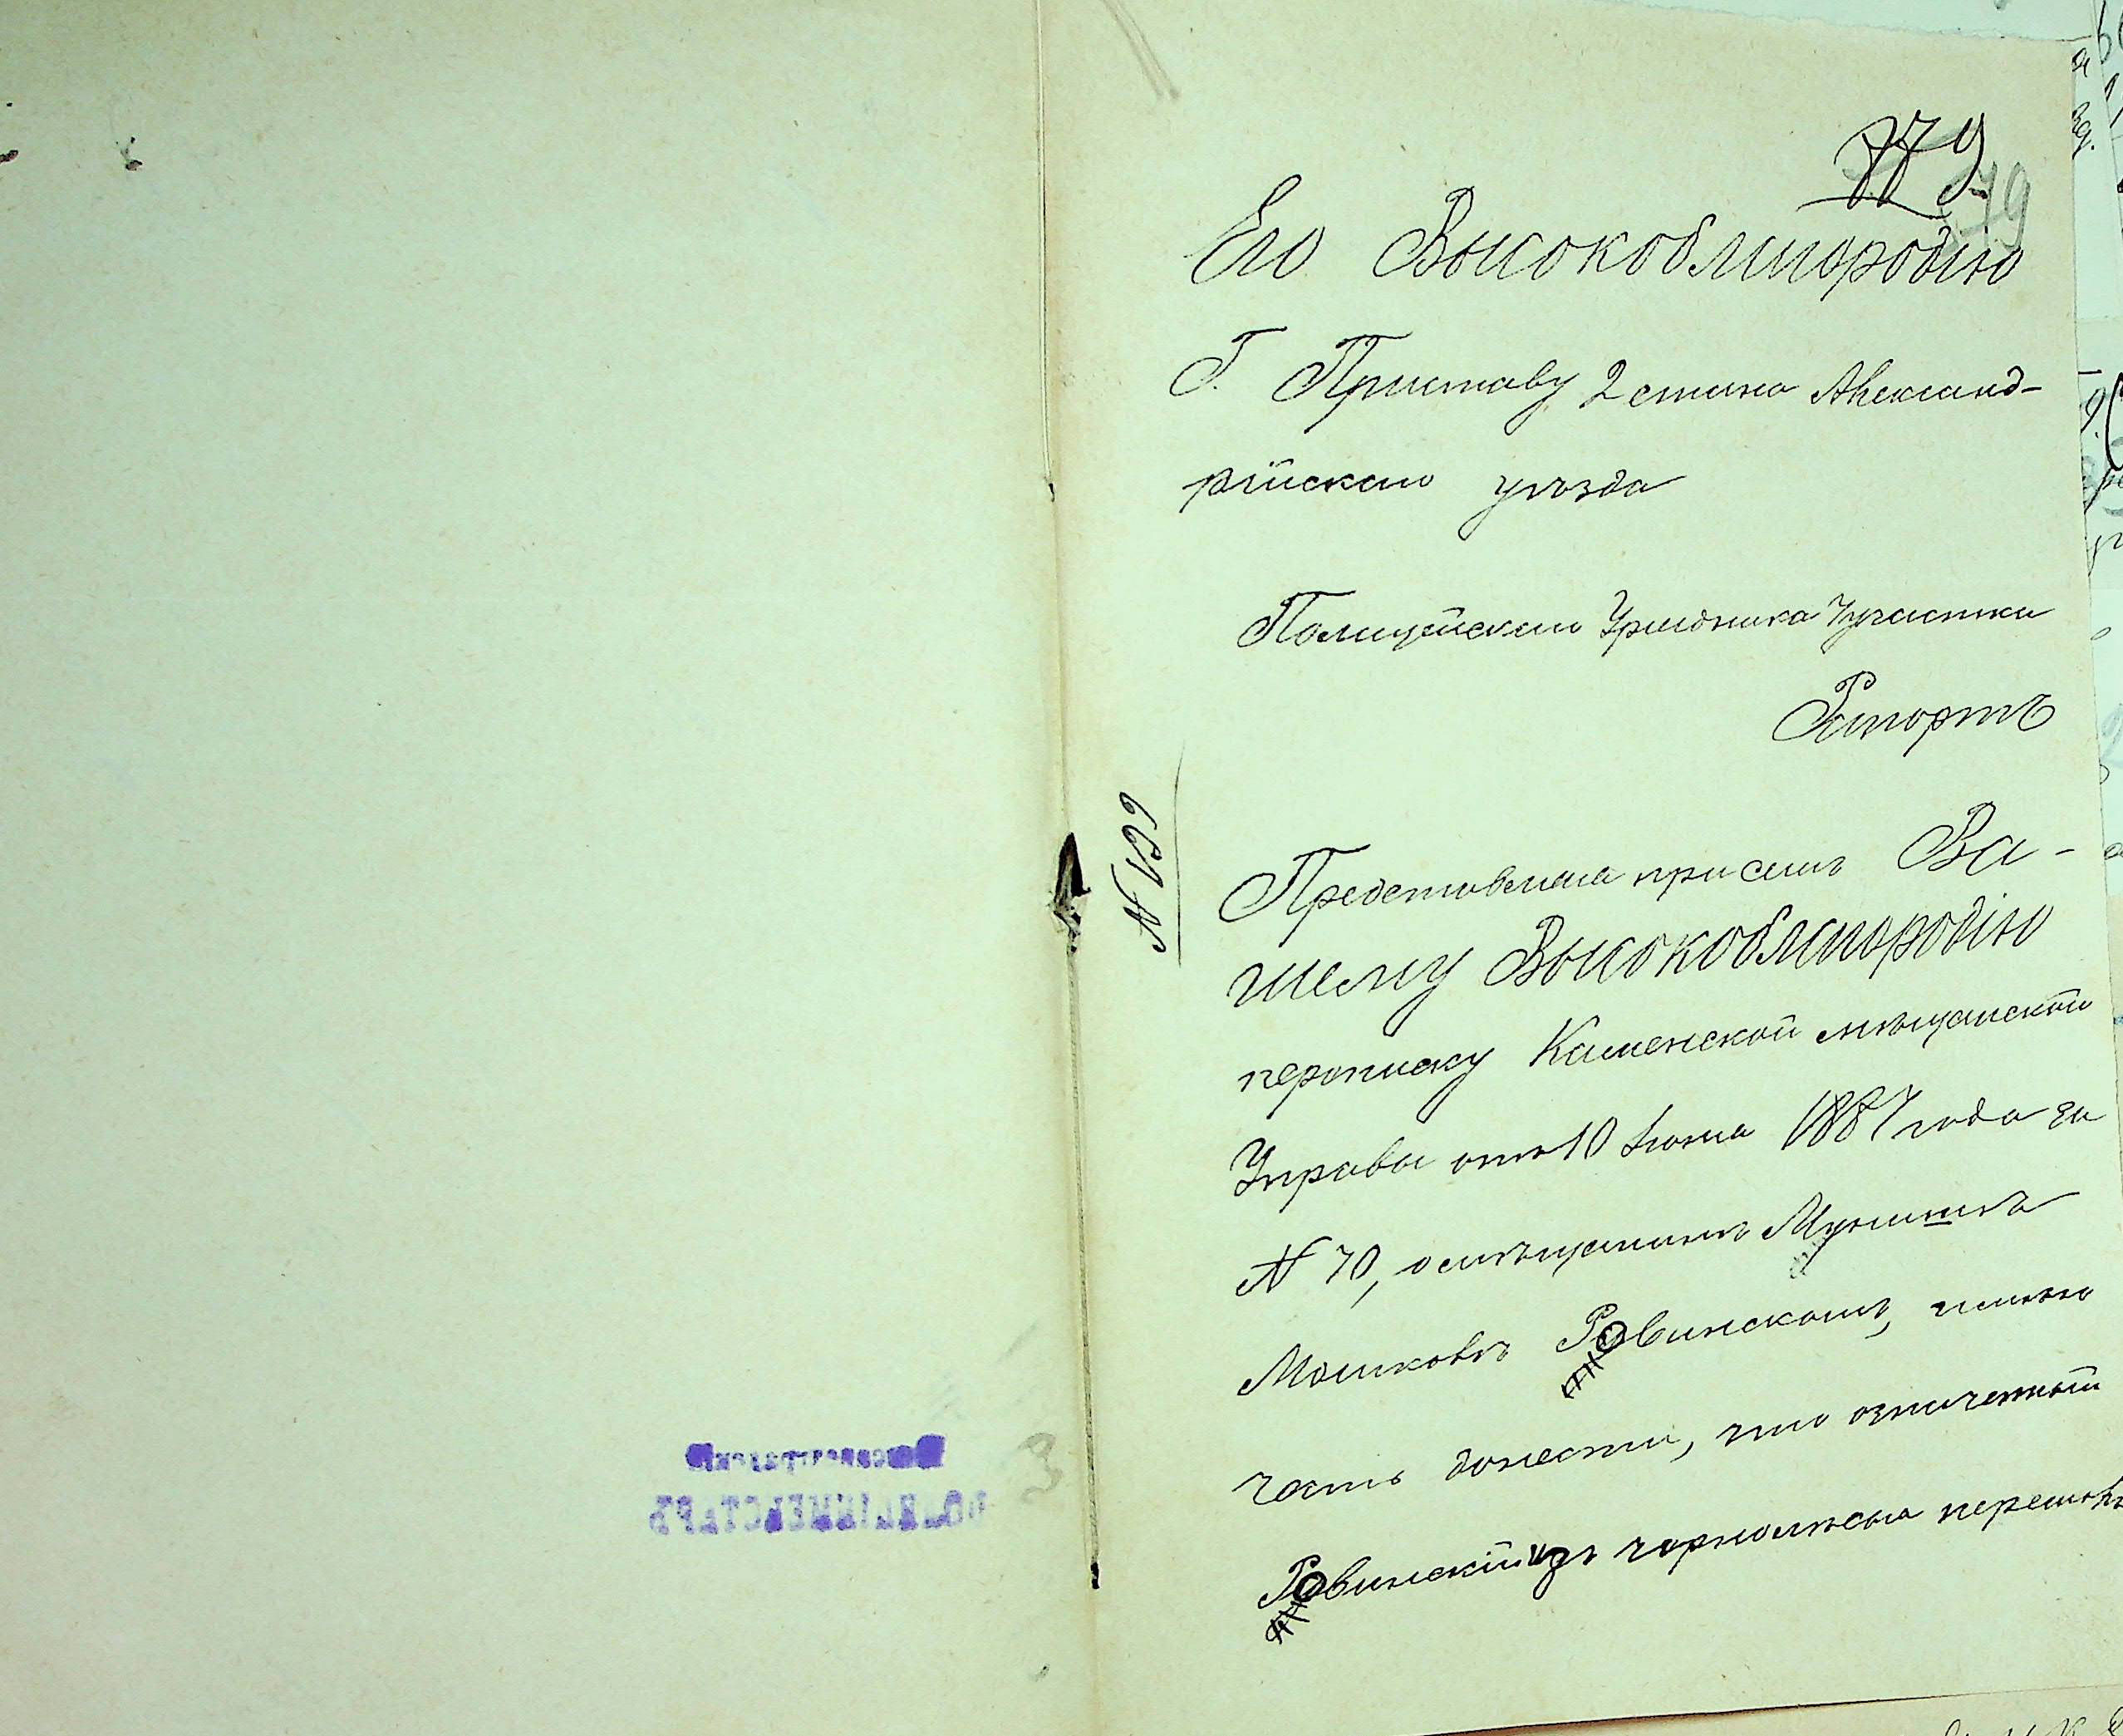 179
Его Высокоблагородію
Г. Приставу 2 стана Александ-
рійскаго уѣзда
Полицейскаго Урядника 7 участка
Рапортъ
N 199
Представляя при семъ Ва-
шему Высокоблагородію
переписку Каменской мѣщанской
Управы отъ 10 Іюня 1887 года за
N 70, о мѣщанинѣ
Мошковѣ Ровинскомъ, имѣю
честь донести, что означенный
Ровинскій изъ чорнолѣска